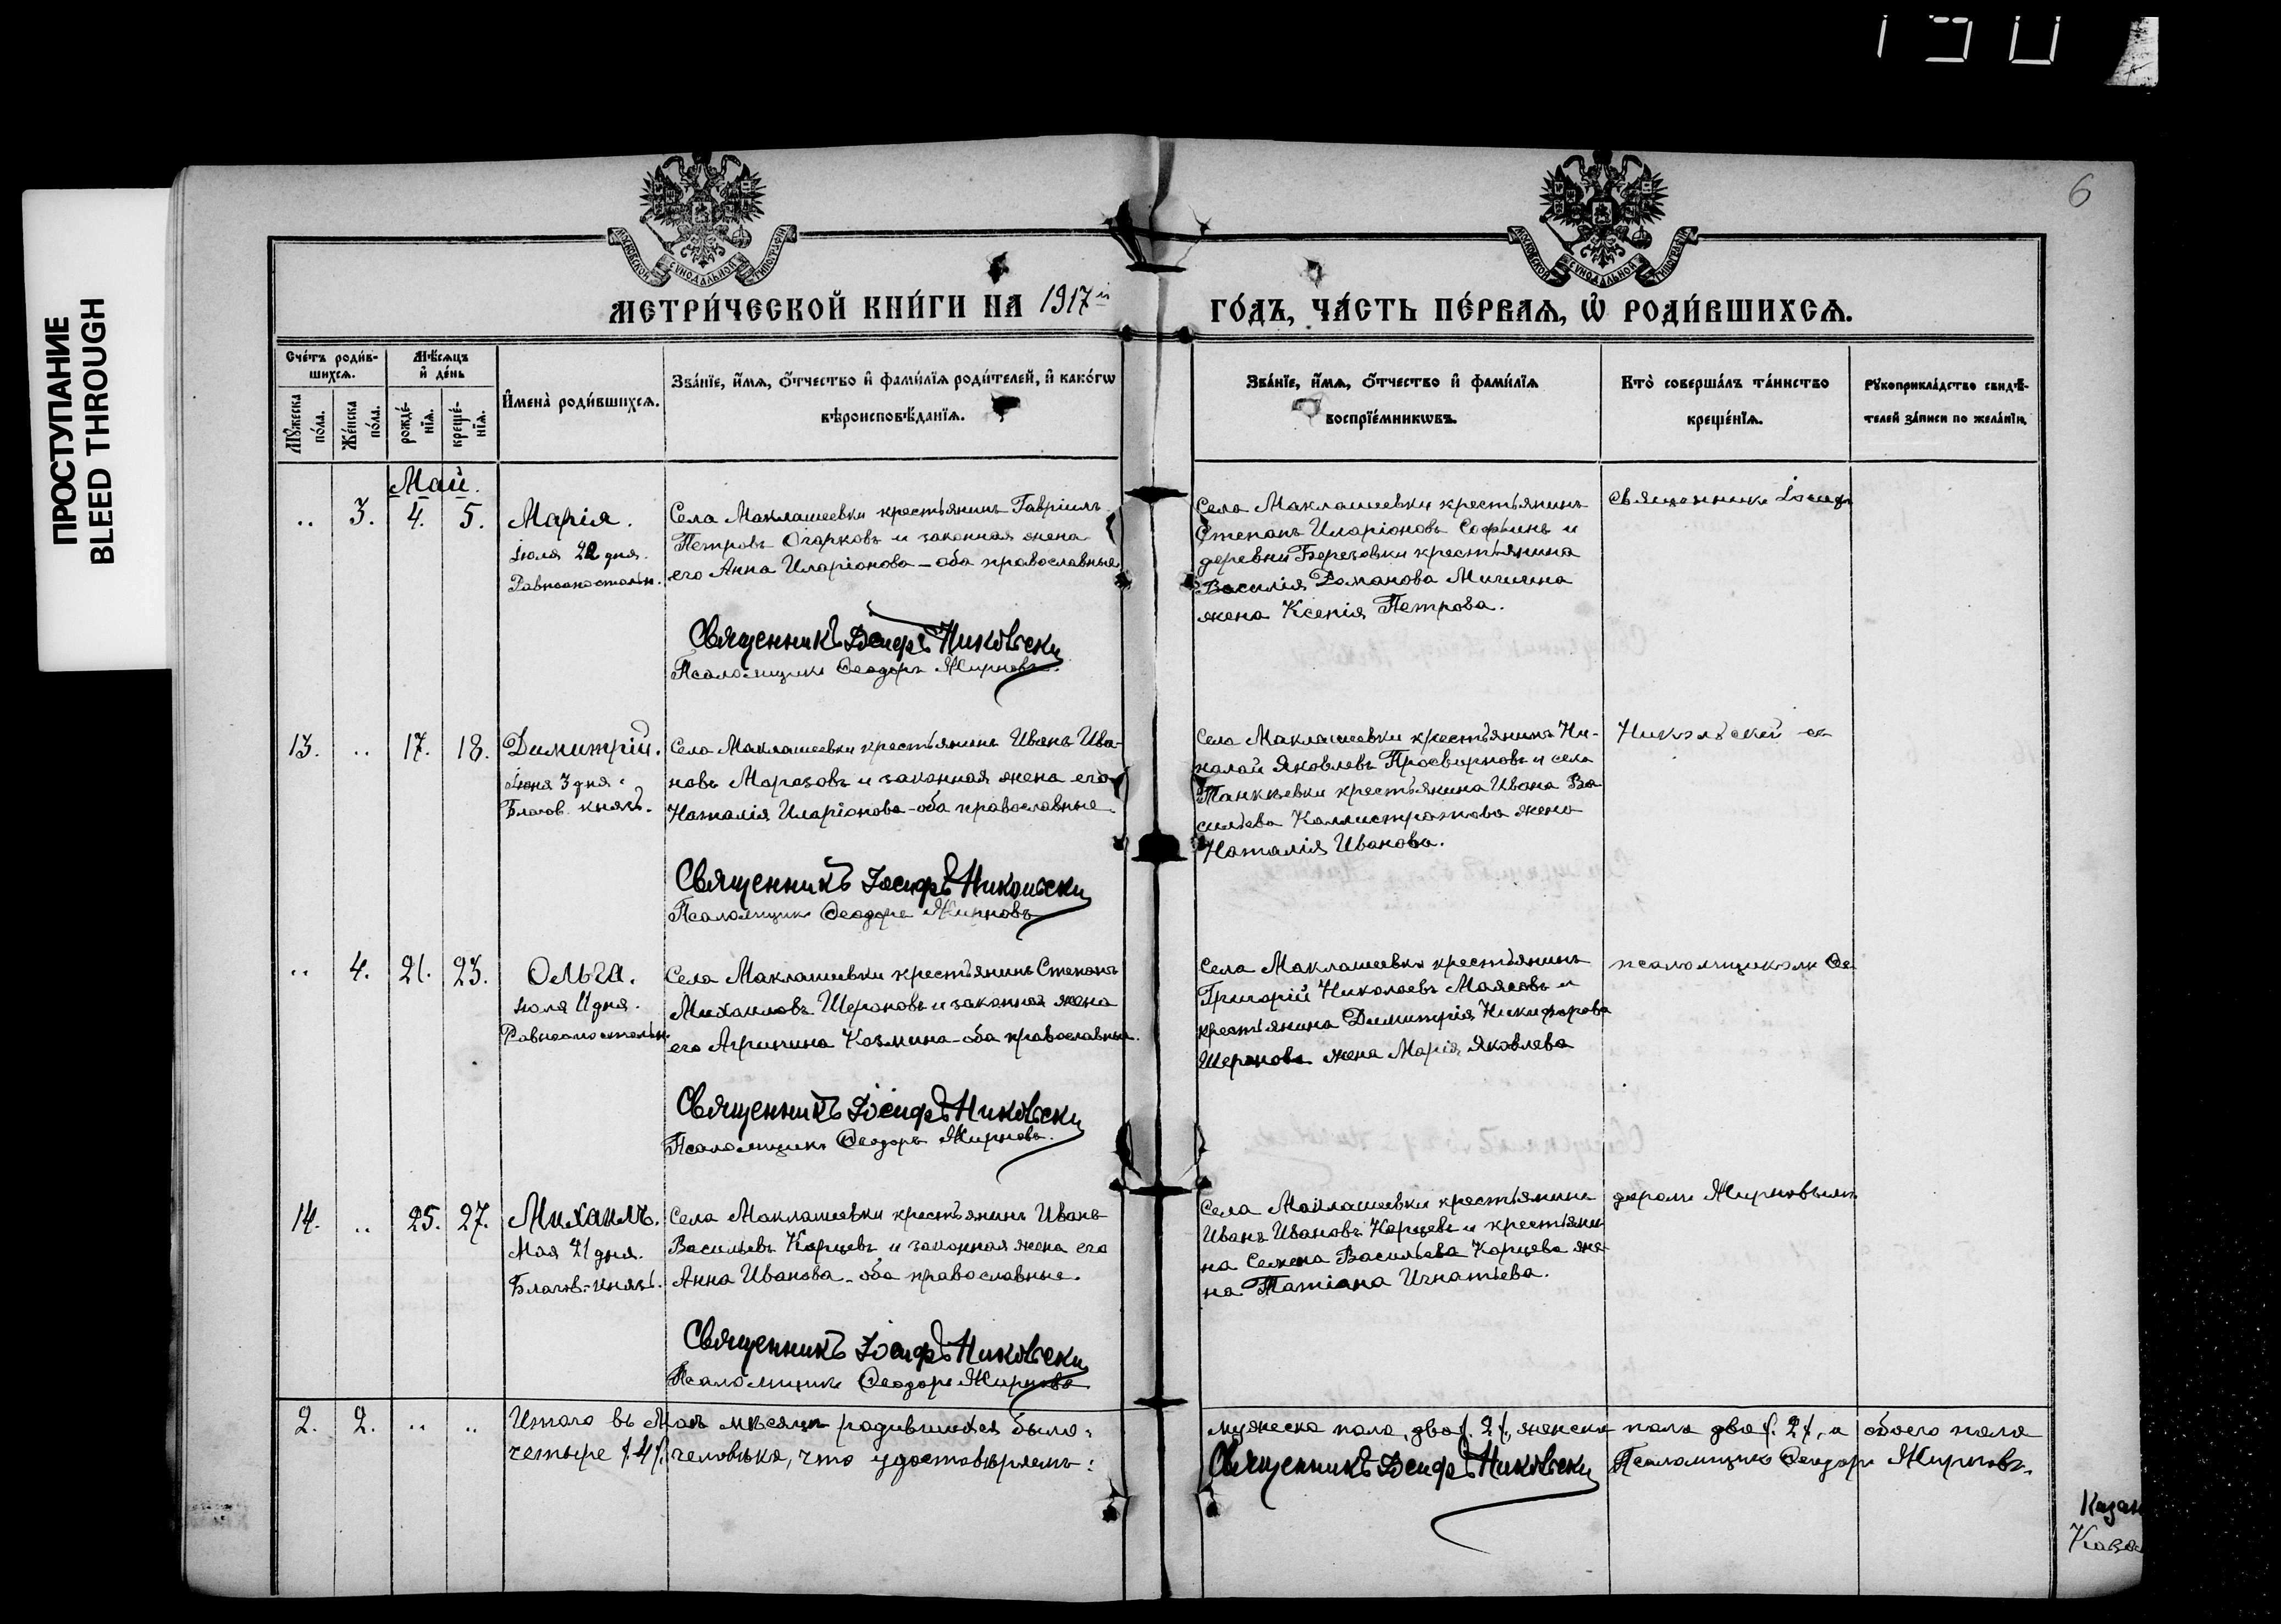 ПРОСТУПАНИЕ
BLEED THROUGH
6
МОСКОВСКОЙ СѴНОДАЛЬНОЙ ТИПОГРАФІИ
МОСКОВСКОЙ СѴНОДАЛЬНОЙ ТИПОГРАФІИ
МЕТРИ́ЧЕСКОЙ КНИ́ГИ НА 1917й ГО́ДЪ, ЧА́СТЬ ПЕ́РВАѦ, Ѡ҆ РОДИ́ВШИХСѦ.
Сче́тъ роди́в-
шихсѧ.
Мѣ́сѧцъ
и҆ де́нь
Мꙋ́жеска по́ла.
Же́нска по́ла.
рожде́-нїѧ.
креще́-нїѧ.
И҆мена̀ роди́вшихсѧ.
Зва́нїе, и҆́мѧ, ѻ҆́тчество и҆ фами́лїѧ роди́телей, и҆ како́гѡ
вѣроисповѣ́данїѧ.
Зва́нїе, и҆́мѧ, ѻ҆́тчество и҆ фами́лїѧ
воспрїе́мникѡвъ.
Кто̀ соверша́лъ та́инство
креще́нїѧ.
Рꙋкоприкла́дство свидѣ́-
телей за́писи по жела́нїю.
Май.
.. 3. 4. 5. Марія.
Іюля 22 дня.
Равноапостольн.
Села Маклашеевки крестьянинъ Гавріилъ
Петровъ Огарковъ и законная жена
его Анна Иларіонова - оба православные
Священникъ Іосифъ Никольски
Псаломщикъ Ѳеодоръ Жирновъ.
Села Маклашеевки крестьянинъ
Степанъ Иларіоновъ Софьинъ и
деревни Березовки крестьянина
Василія Романова Мичагина
жена Ксенія Петрова.
Священникъ Іосифъ
13. .. 17. 18. Димитрій.
Іюня 3 дня.
Благов. князь.
Села Маклашеевки крестьянинъ Иванъ Ива-
новъ Морозовъ и законная жена его
Наталія Иларіонова - оба православные
Священникъ Іосифъ Никольски
Псаломщикъ Ѳеодоръ Жирновъ
Села Маклашеевки крестьянинъ Ни-
колай Яковлевъ Просвирновъ и села
Танкѣевки крестьянина Ивана Ва
сильева Каллистратова жена
Наталія Иванова.
Никольскій съ
.. 4. 21. 23. Ольга.
Іюля 11 дня.
Равноапостольн.
Села Маклашеевки крестьянинъ Степанъ
Михаиловъ Шероновъ и законная жена
его Агрипина Козмина - оба православные.
Священникъ Іосифъ Никольски
Псаломщикъ Ѳеодоръ Жирновъ.
Села Маклашеевки крестьянинъ
Григорій Николаевъ Маясовъ и
крестьянина Димитрія Никифорова
Шеронова жена Марія Яковлева
псаломщикомъ Ѳе
14. .. 25. 27. Михаилъ.
Мая 21 дня.
Благов. князь.
Села Маклашеевки крестьянинъ Иванъ
Васильевъ Карцевъ и законная жена его
Анна Иванова - оба православные.
Священникъ Іосифъ Никольски
Псаломщикъ Ѳеодоръ Жирновъ
Села Маклашеевки крестьянинъ
Иванъ Ивановъ Карцевъ и крестьяни
на Семена Васильева Карцева же
на Татіана Игнатьева.
доромъ Жирновымъ
2. 2. .. .. Итого въ Маѣ мѣсяцѣ родившихся было:
четыре /.4/. человѣка, что удостовѣряемъ:
мужеска пола два /.2/., женска пола два /.2/., а обоего пола
Священникъ Іосифъ Никольски Псаломщикъ Ѳеодоръ Жирновъ.
Казан
Каза